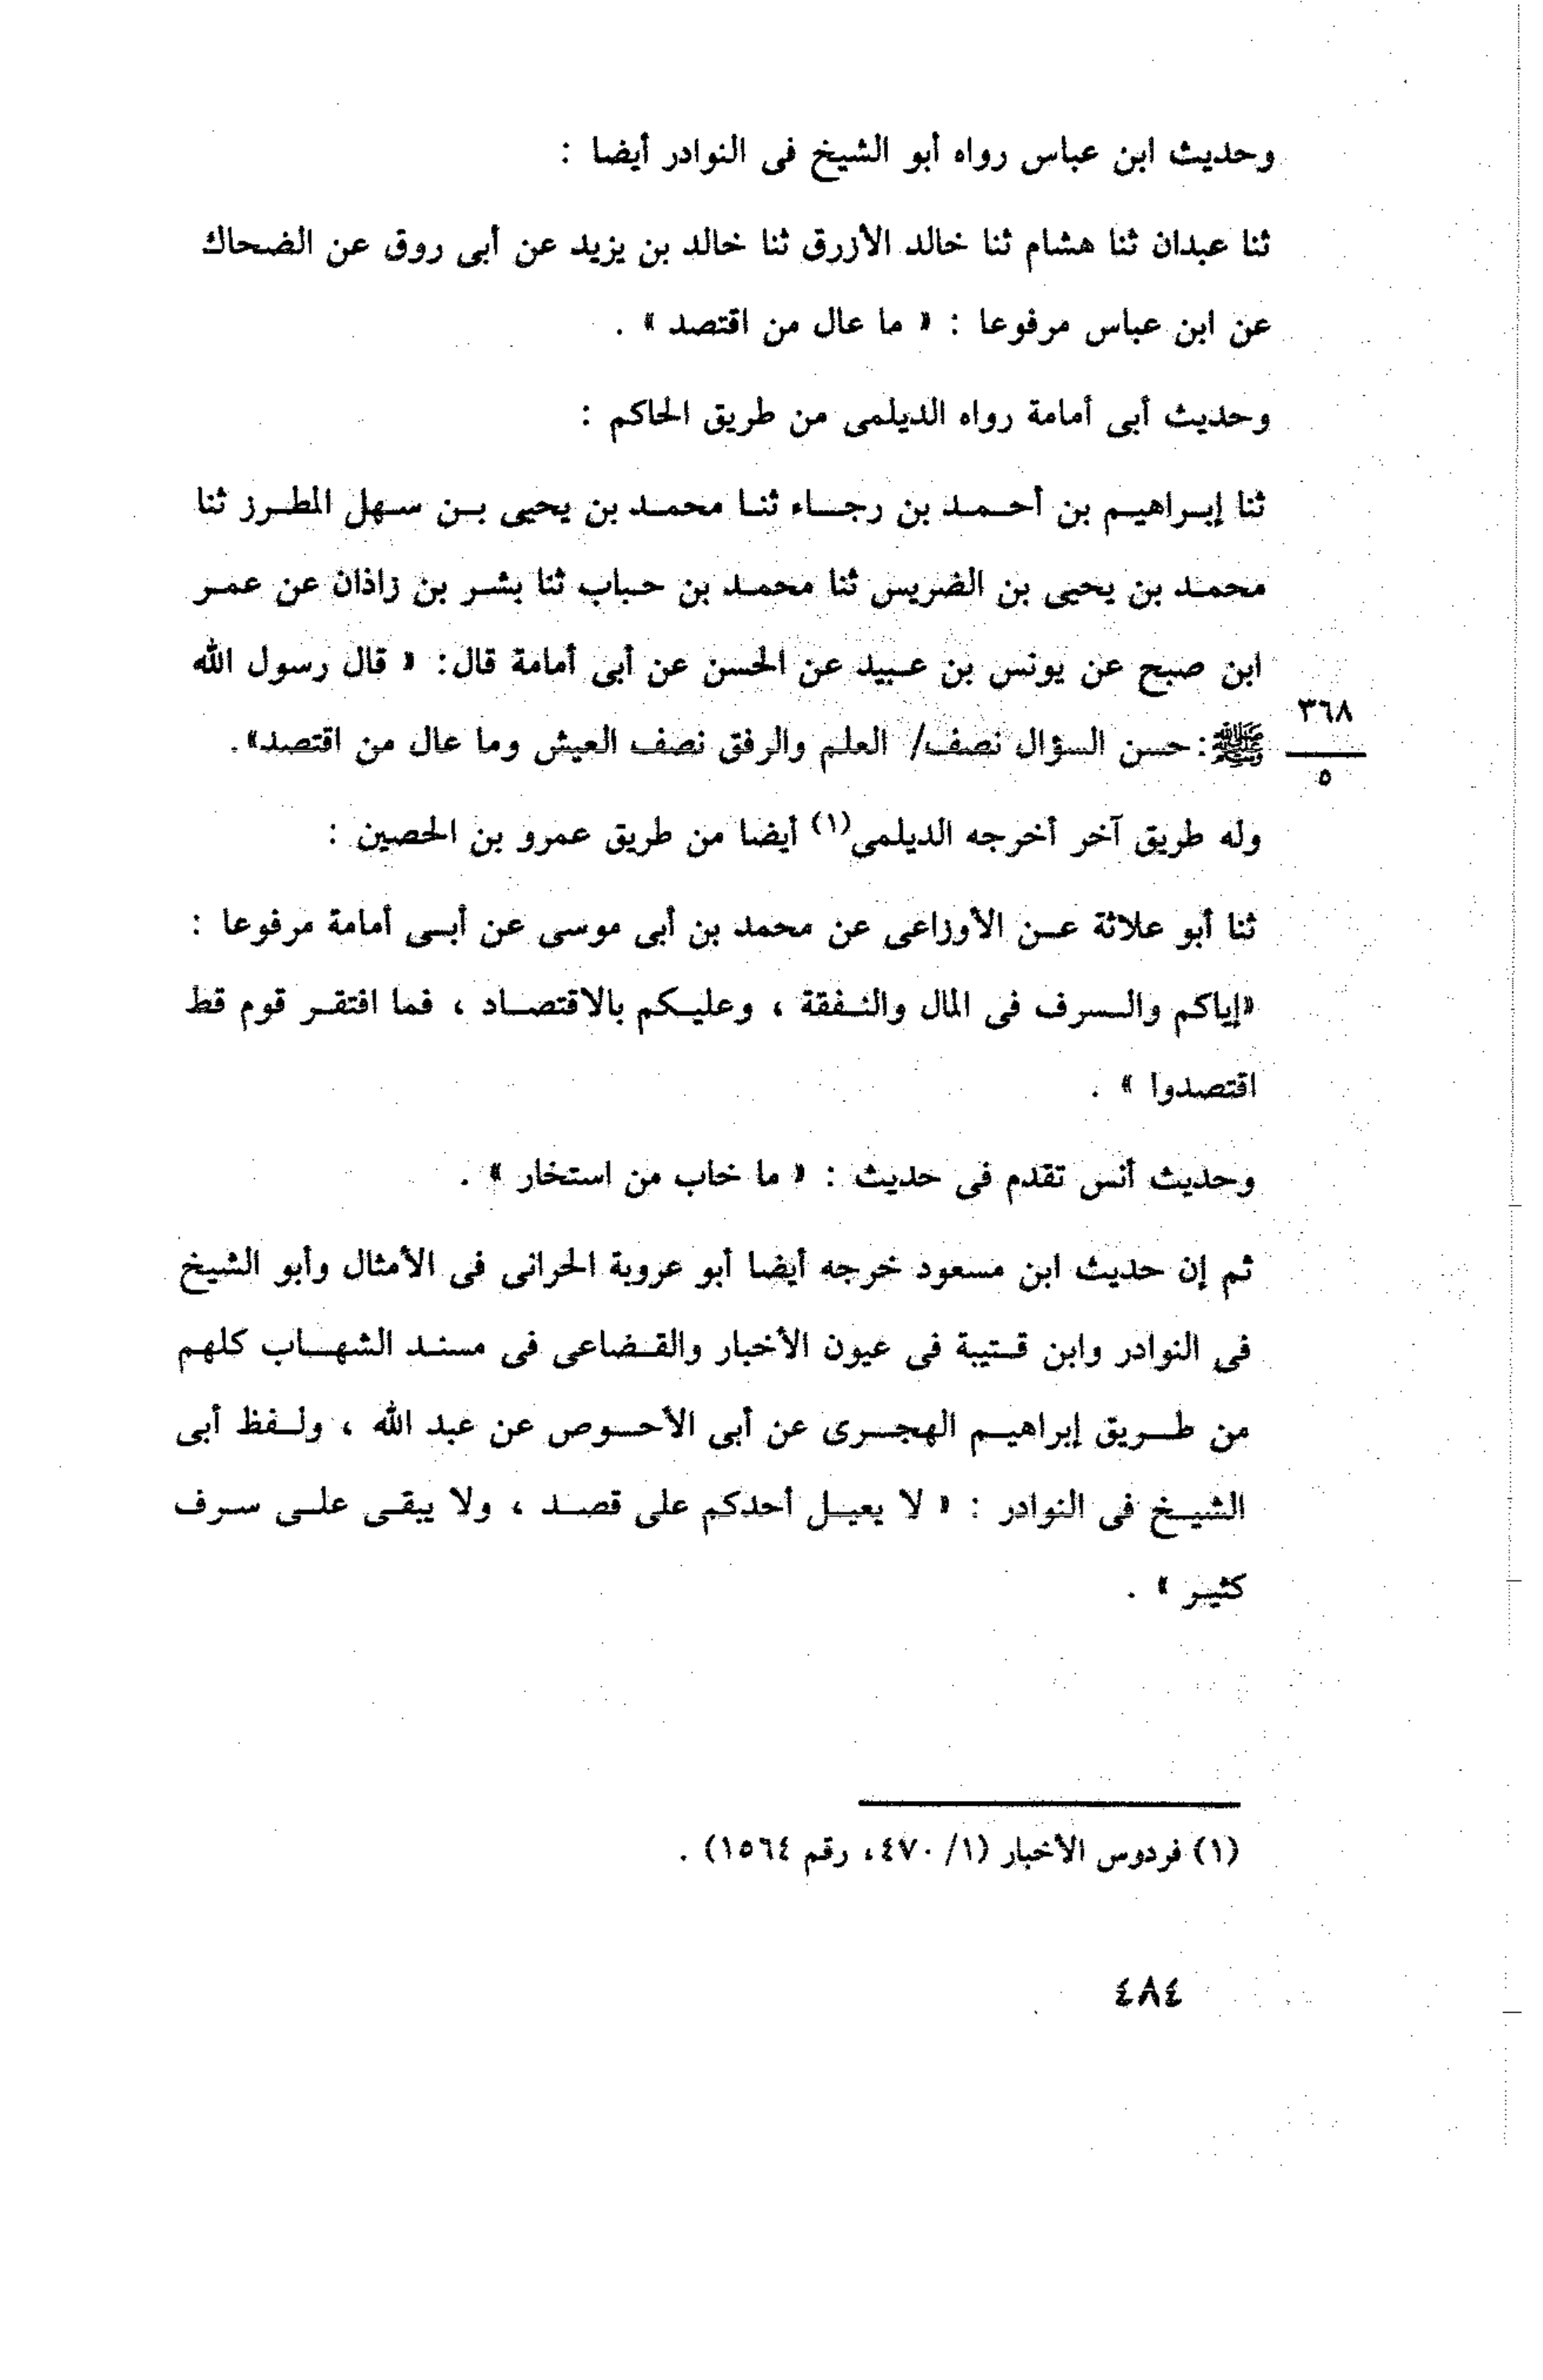 وحديث ابن عباس رواه أبو الشيخ فى النوادر أيضا :
ثنا عبدان ثنا هشام ثنا خالد الأزرق ثنا خالد بن يزيد عن أبى روق عن الضحاك
عن ابن عباس مرفوعا : « ما عال من اقتصد » .
وحديث أبى أمامة رواه الديلمى من طريق الحاكم :
ثنا إبراهيم بن أحمد بن رجاء ثنا محمد بن يحيى بن سهل المطرز ثنا
محمد بن يحيى بن الضريس ثنا محمد بن حباب ثنا بشر بن زاذان عن عمر
ابن صبح عن يونس بن عبيد عن الحسن عن أبى أمامة قال: « قال رسول الله
ﷺ: حسن السؤال نصف/ العلم والرفق نصف العيش وما عال من اقتصد».
٣٦٨
٥
وله طريق آخر أخرجه الديلمى(١) أيضا من طريق عمرو بن الحصين :
ثنا أبو علاثة عن الأوزاعى عن محمد بن أبى موسى عن أبى أمامة مرفوعا :
«إياكم والسرف فى المال والنفقة ، وعليكم بالاقتصاد ، فما افتقر قوم قط
اقتصدوا » .
وحديث أنس تقدم فى حديث : « ما خاب من استخار » .
ثم إن حديث ابن مسعود خرجه أيضا أبو عروبة الحرانى فى الأمثال وأبو الشيخ
فى النوادر وابن قتيبة فى عيون الأخبار والقضاعى فى مسند الشهاب كلهم
من طريق إبراهيم الهجرى عن أبى الأحوص عن عبد الله ، ولفظ أبى
الشيخ فى النوادر : « لا يعيل أحدكم على قصد ، ولا يبقى على سرف
كثير » .
(١) فردوس الأخبار (١/ ٤٧٠، رقم ١٥٦٤) .
٤٨٤